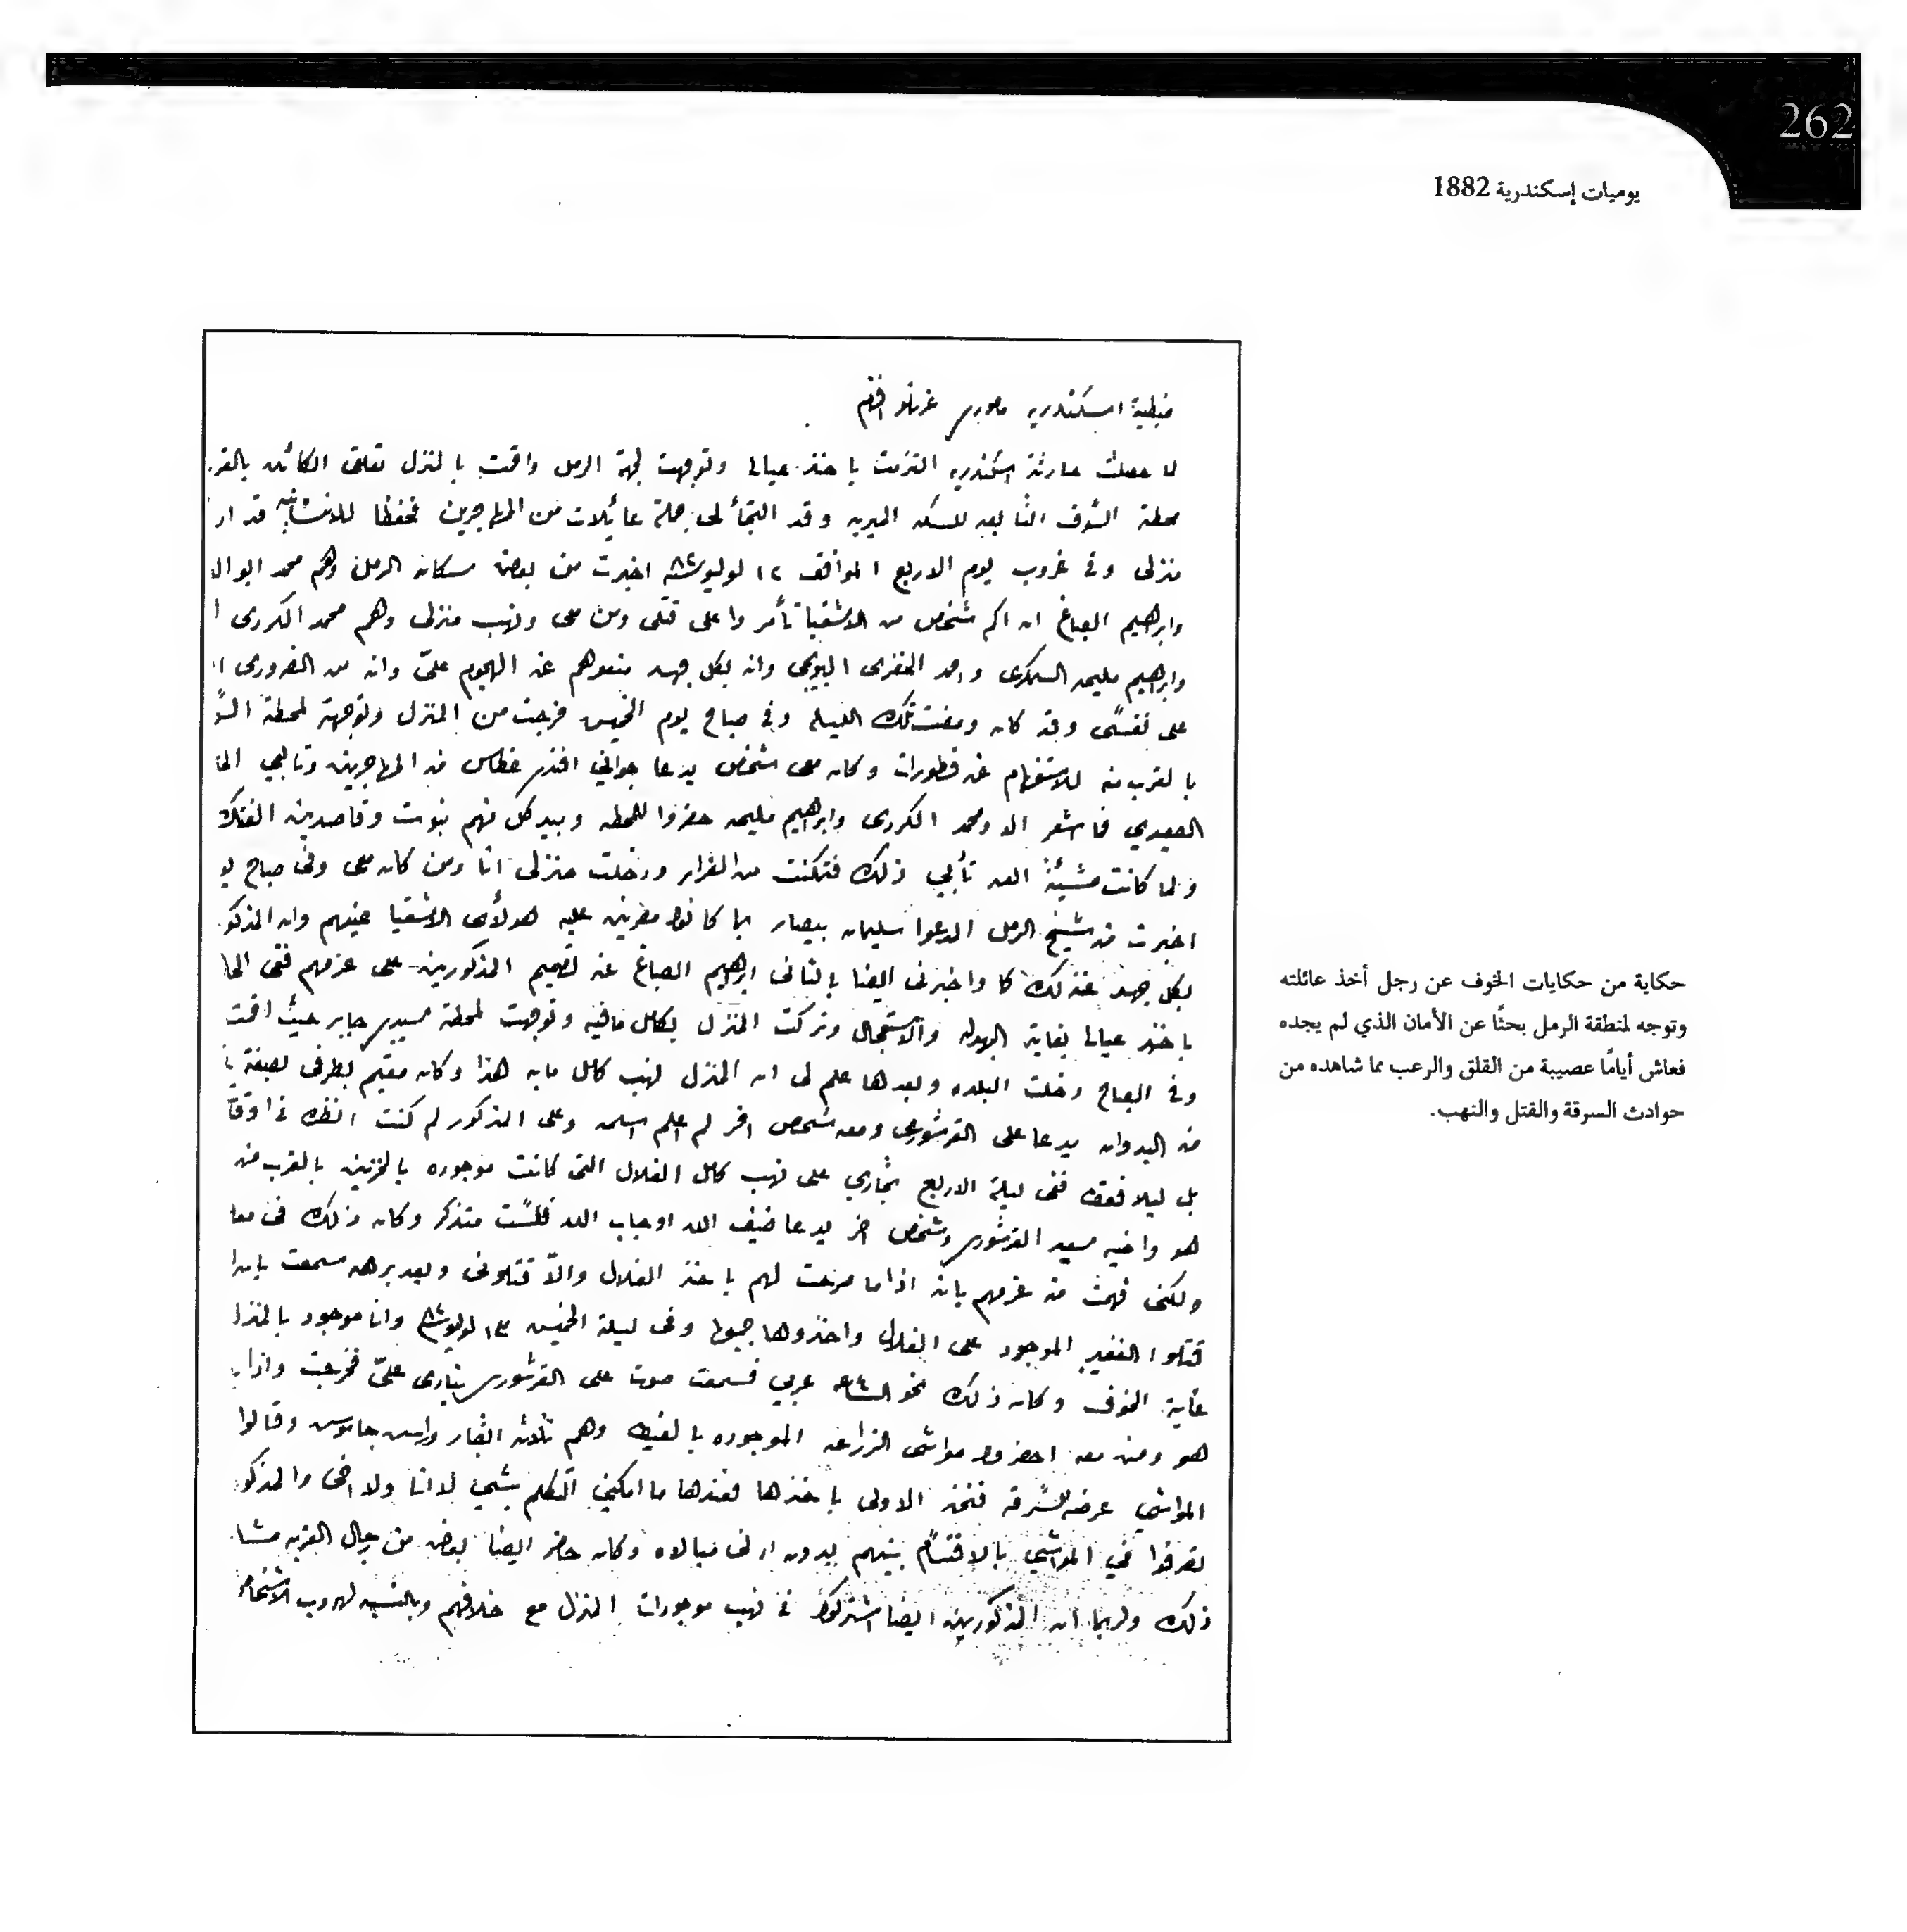 262
يوميات إسكندرية 1882
ضبطية اسكندريه مامورى عزتلو افندم
لما حصلت حادثة اسكندريه التزمت باخذ عيالى وتوجهت لجهة الرمل واقمت بالمنزل تعلقى الكائن بالقر
محطة الشوف التابعه للسكه الميريه وقد التجأ لى جملة عائيلات من المهاجرين تحفظا قد ار
منزلى وفى غروب يوم الاربع الموافق ١٢ لوليو سنه ٨٢ اخبرت من بعض سكان الرمل وهم محمد ابو ال
وابراهيم الصباغ ان اكم شخص من الاشقيا تأمروا على قتلى ومن معى ونهب منزلى وهم محمد الكردى ا
وابراهيم مليحه السمكرى واحمد الخضرى البويجى وانه بكل جهد منعوهم عن الهجوم علىّ وانه من الضرورى ا
على نفسى وقد كان ومضت تلك الليله وفى صباح يوم الخميس خرجت من المنزل وتوجهة لمحطة الشو
بالقرب منه للاستفهام عن قطورات وكان معى شخص يدعا جوانى افندى غطاس من المهاجرين وتابعى الحا
الصعيدي فما اشعر الا ومحمد الكردى وابراهيم مليحه حضروا للمحطه وبيد كل منهم نبوت وقاصدين الفتك
ولما كانت مشيئة الله تأبي ذلك فتمكنت من الفرار ودخلت منزلى انا ومن كان معى وفى صباح يو
اخبرت من شيخ الرمل المدعوا سليمان بيصار بما كانوا مصرين عليه هولأى الاشقيا عينهم وان المذكو
بكل جهد عن ذلك كما واخبرنى ايضا بالثانى ابراهيم الصباغ عن تصميم المذكورين على عزمهم ففى الحا
باخذ عيالى بغاية البهدله والاستعجال وتركت المنزل بكامل مافيه وتوجهت لمحطة سيدى جابر حيث اقمت
وفى الصباح دخلت البلده وبعدها علم لى ان المنزل نهب كامل مابه هذا وكان مقيم بطرفى بصفة
من البدوان يدعا على القرشورى ومعه شخص اخر لم اعلم اسمه وعلى المذكور لم كنت انظره فى اوقا
بل ليلا فقط ففى ليلة الاربع تجارى على نهب كامل الغلال التى كانت موجوده بالخزين بالقرب من
هو واخيه سعيد القرشورى وشخص اخر يدعا ضيف الله او جاب الله فلست متذكر وكان ذلك فى معا
ولكنى فهمت من عزمهم بانه اذا ما صرحت لهم باخذ الغلال والاّ قتلونى وبعد برهه سمعت بان
قتلوا الغفير الموجود على الغلال واخذوها جميعا وفى ليلة الخميس ١٣ لوليو سنه وانا موجود بالمنزل
غاية الخوف وكان ذلك نحو الساعه ٤ عربي فسمعت صوت على القرشورى ينادى علىّ فخرجت واذا
هو ومن معه احضروا مواشى الزراعه الموجوده بالغيط وهم ثلاثة اثار وراس جاموس وقالوا
المواشي عرضه للسرقه فنحن الاولى باخذها فعندها ما امكنني اتكلم بشي لا انا ولا اخى والمذكو
تصرفوا في المواشي بالاقتسام بينهم بدون ادنى مبالاه وكان حاضر ايضا بعض من رجال القريه مشا
ذلك ولربما ان المذكورين ايضا اشتركوا فى نهب موجودات المنزل مع خلافهم وبالنسبه لهروب الاشخاص
حكاية من حكايات الخوف عن رجل أخذ عائلته
وتوجه لمنطقة الرمل بحثًا عن الأمان الذي لم يجده
فعاش أيامًا عصيبة من القلق والرعب مما شاهده من
حوادث السرقة والقتل والنهب.